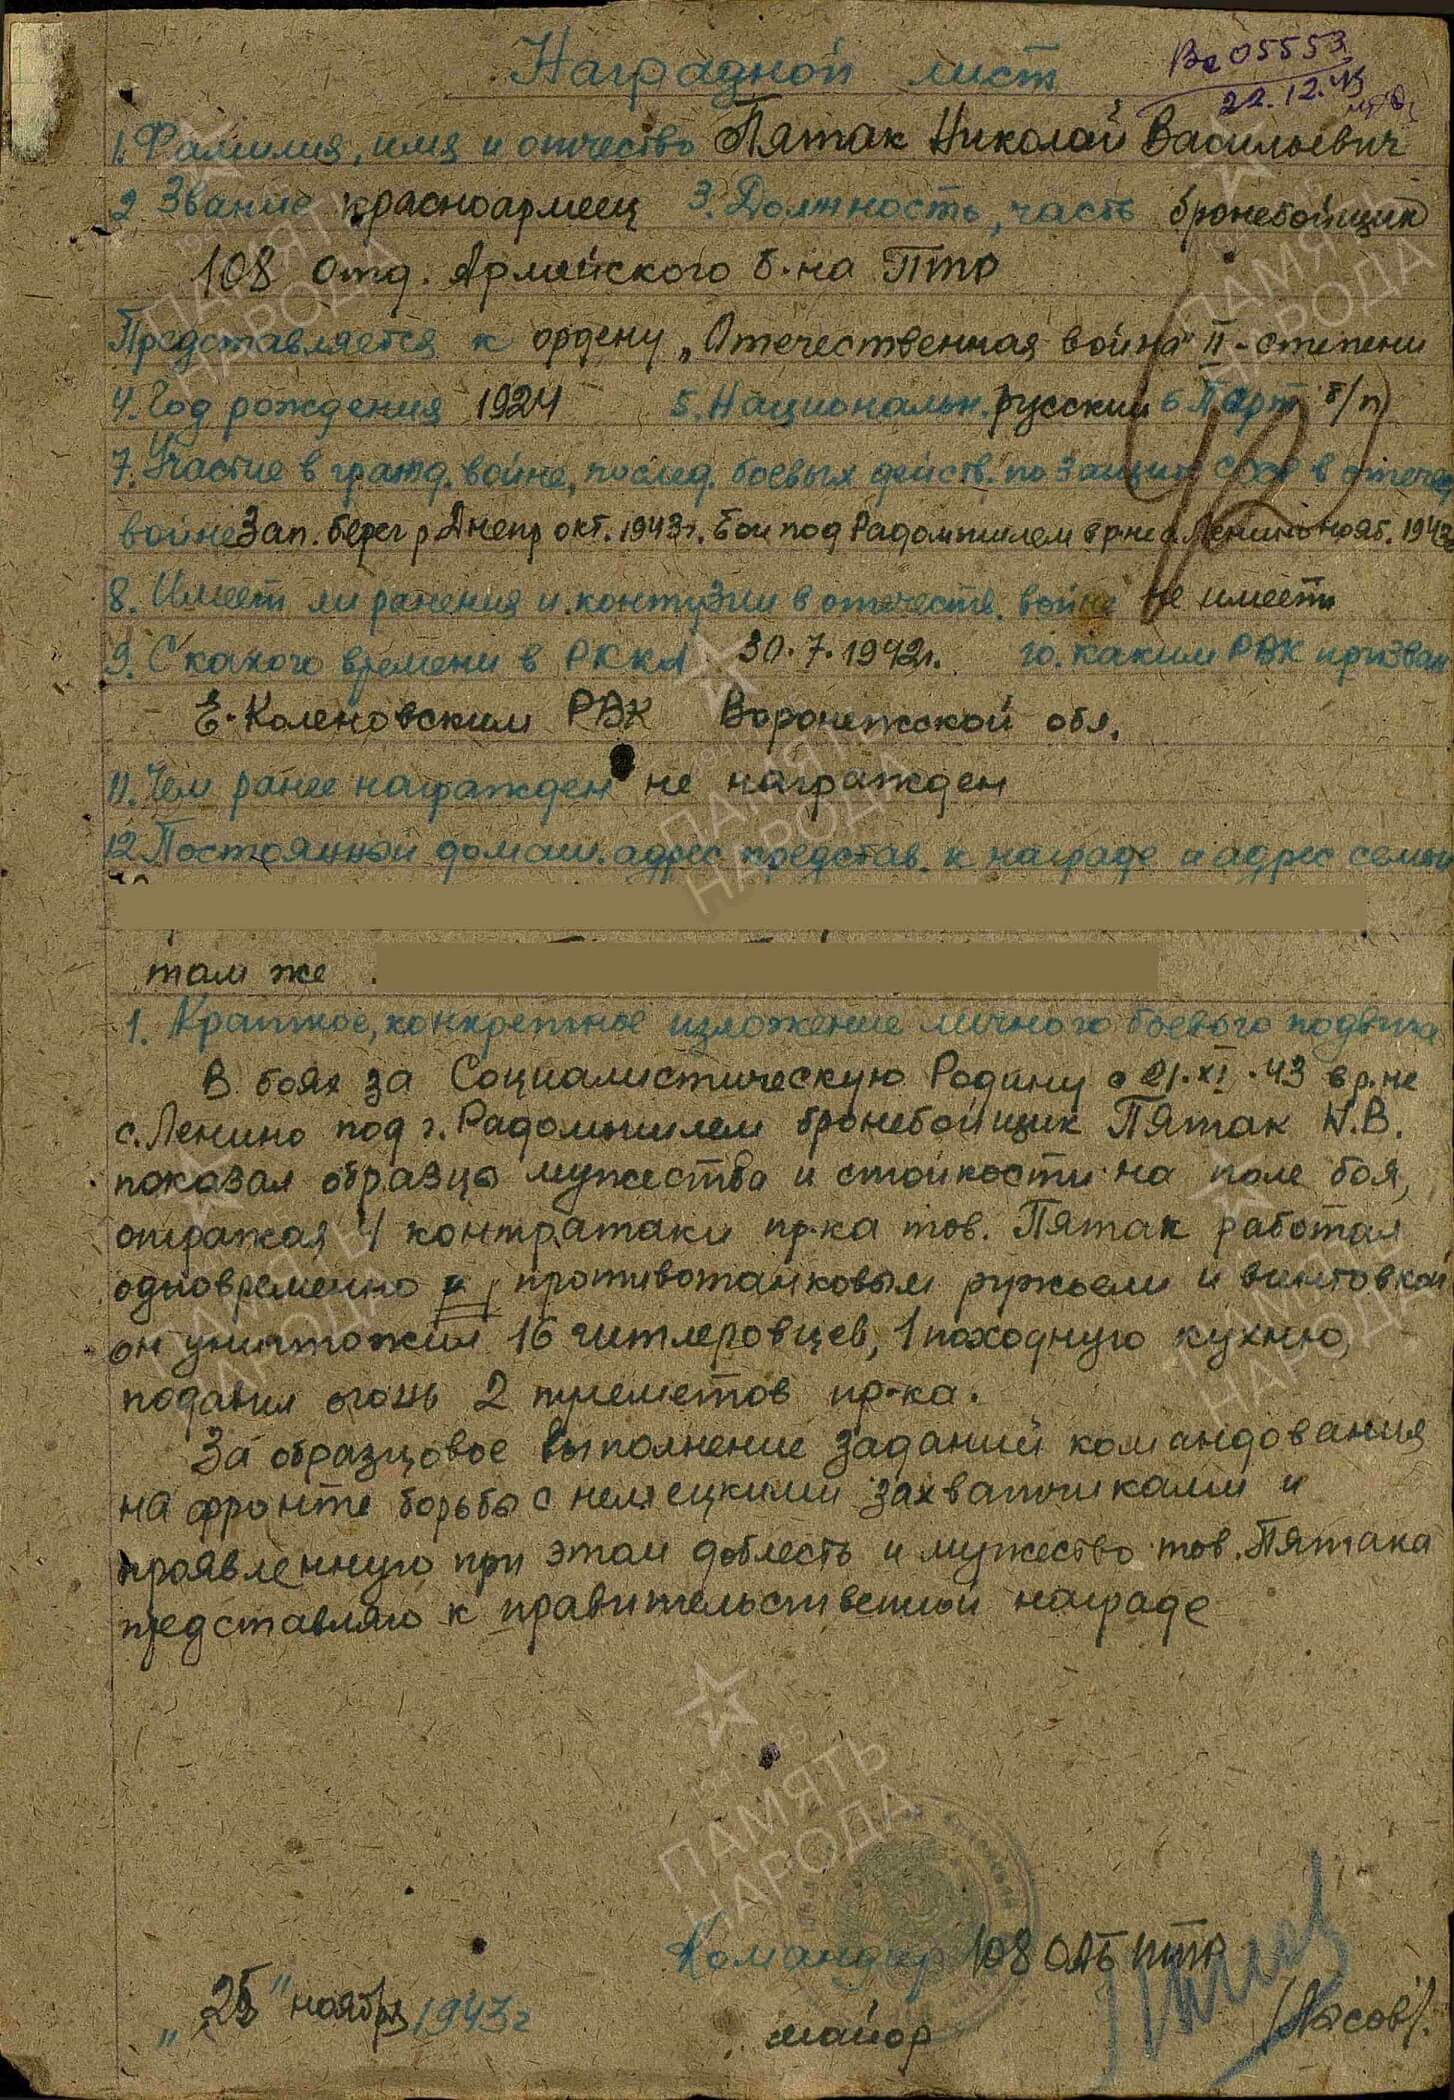 Наградной лист
Ва 05553
22.12.43
1. Фамилия, имя и отчество Пятак Николай Васильевич
2. Звание красноармеец 3. Должность, часть бронебойщик
108 отд. Армейского б-на ПТР
Представляется к ордену „Отечественная война" II-степени
4. Год рождения 1924 5. Национальн. русский 6 Парт б/п
7. Участие в гражд. войне, послед. боевых действ. по защите СССР в отечес
войне Зап. берег р. Днепр окт. 1943г. Бои под Радомышлем в р-не с. Ленино нояб. 1943
8. Имеет ли ранения и контузии в отечеств. войне не имеет
9. С какого времени в РККА 30.7.1942г. 10. каким РВК призван
Е-Коленовским РВК Воронежской обл.
11. Чем ранее награжден не награжден
12 Постоянный домаш. адрес представ. к награде и адрес семьи
там же
1. Краткое, конкретное изложение личного боевого подвига
В боях за Социалистическую Родину с 21.XI.43 в р-не
с. Ленино под г. Радомышлем бронебойщик Пятак Н.В.
показал образцы мужества и стойкости на поле боя,
отражая 4 контратаки пр-ка тов. Пятак работал
одновременно и противотанковым ружьем и винтовкой
он уничтожил 16 гитлеровцев, 1 походную кухню,
подавил огонь 2 пулеметов пр-ка.
За образцовое выполнение заданий командования
на фронте борьбы с немецкими захватчиками и
проявленную при этом доблесть и мужество тов. Пятака
представляю к правительственной награде
Командир 108 ОАБ ПТР
„25" ноября 1943г
майор /Лысов/.
ПАМЯТЬ НАРОДА